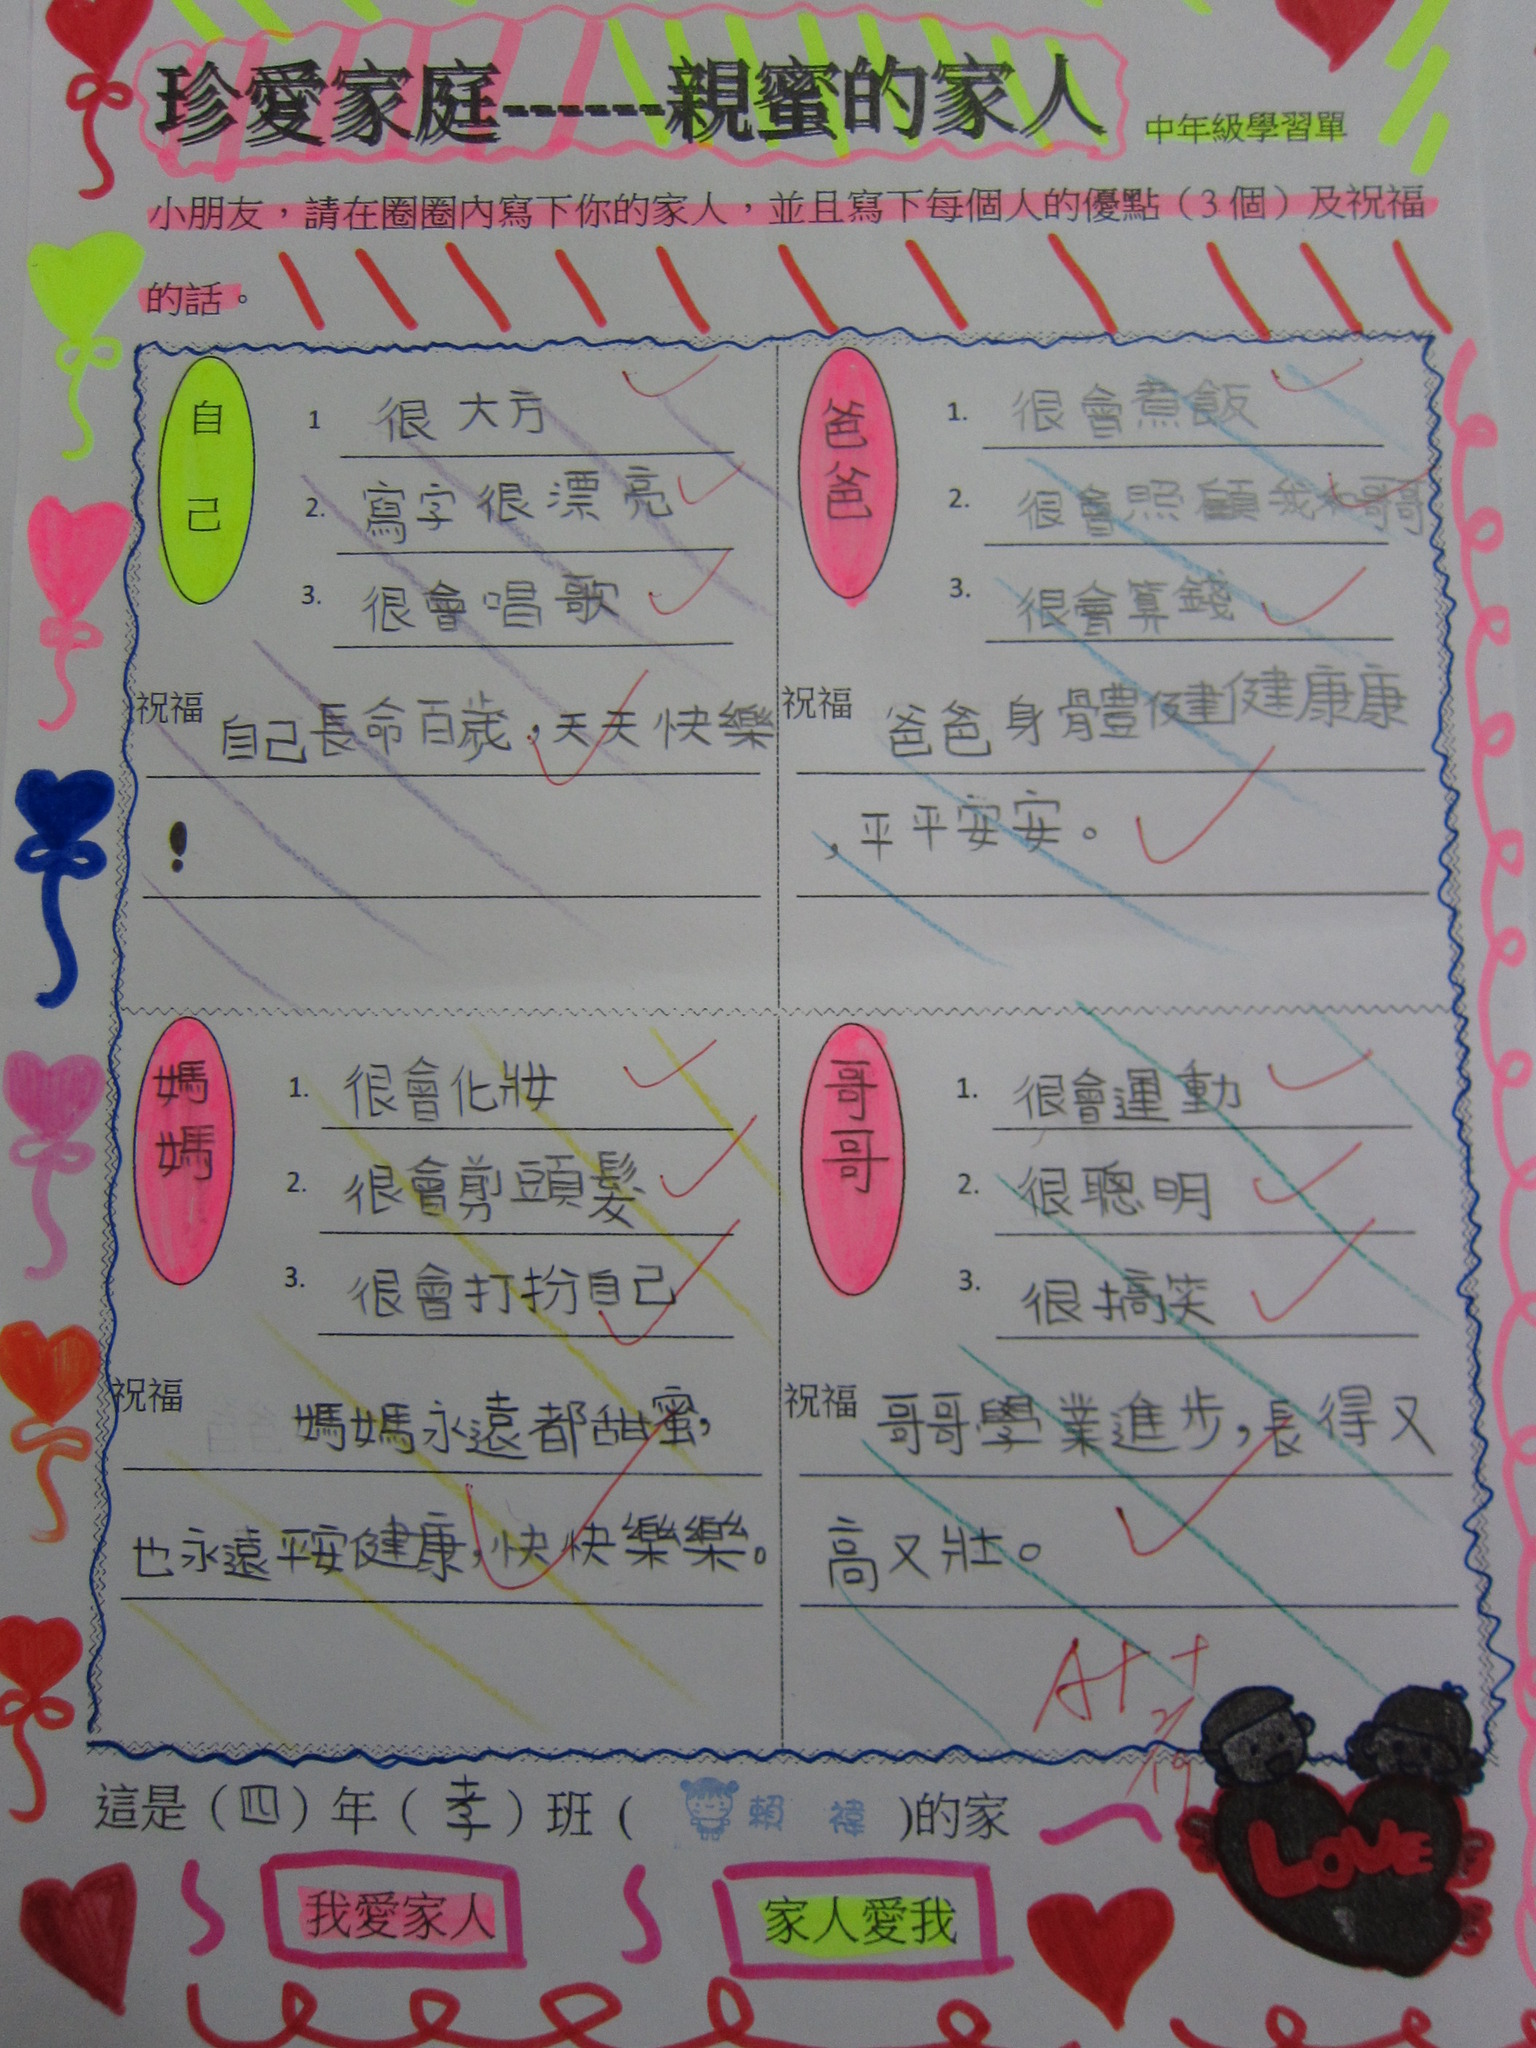 珍愛家庭------親蜜的家人 中年級學習單
小朋友，請在圈圈內寫下你的家人，並且寫下每個人的優點（3個）及祝福
的話。
自己
1 很大方
2. 寫字很漂亮
3. 很會唱歌
祝福 自己長命百歲，天天快樂
!
爸爸
1. 很會煮飯
2. 很會照顧我和哥哥
3. 很會算錢
祝福 爸爸身體健健康康
，平平安安。
媽媽
1. 很會化妝
2. 很會剪頭髮
3. 很會打扮自己
祝福 媽媽永遠都甜蜜，
也永遠平安健康，快快樂樂。
哥哥
1. 很會運動
2. 很聰明
3. 很搞笑
祝福 哥哥學業進步，長得又
高又壯。
A++
這是（四）年（孝）班（賴 )的家
LOVE
我愛家人 家人愛我